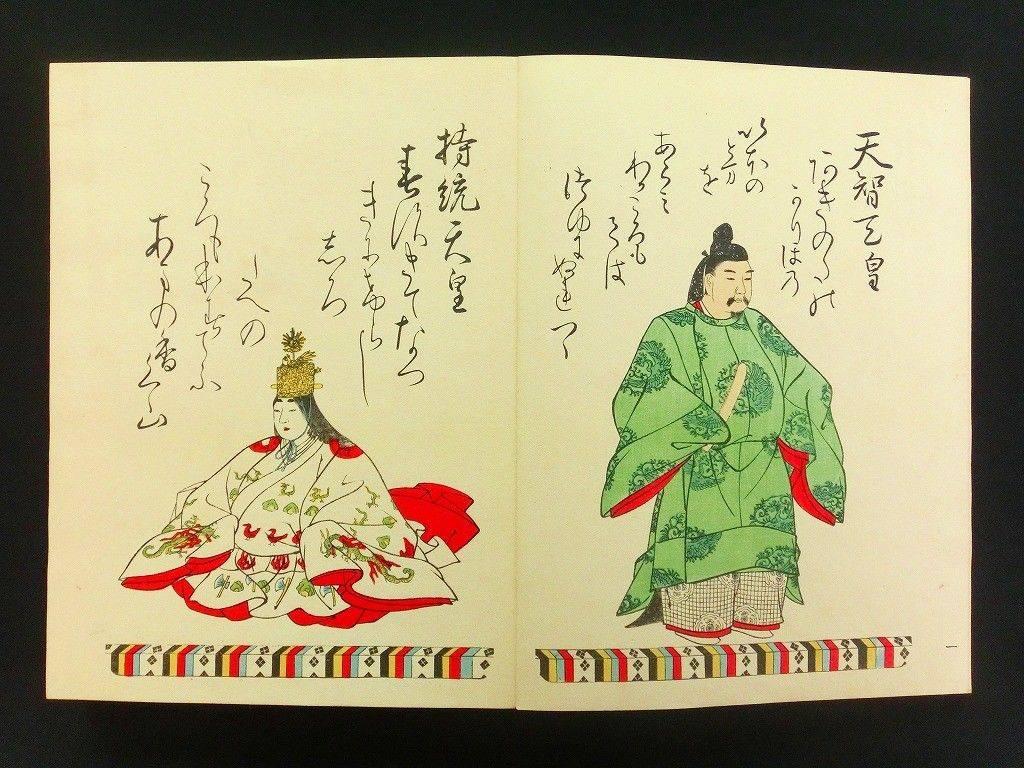 天智天皇
あきのたの
かりほの
いほの
とま
を
あらみ
わかころも
ては
つゆに
ぬれつゝ
一
持統天皇
春過てなつ
きにけらし
しろ
たへの
ころもほすてふ
あまの香く山